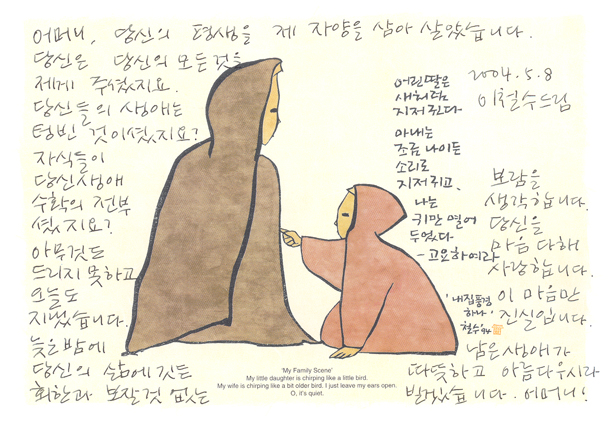 어머니, 당신의 평생을 제 자양을 삼아 살았습니다.
당신은 당신의 모든것을
제게 주셨지요.
당신들의 생애는
텅빈 것이셨지요?
자식들이
당신생애
수확의 전부
셨지요?
아무것도
드리지 못하고
오늘도
지냈습니다.
늦은밤에
당신의 삶에 깃든
회한과 보잘것 없는
2004. 5. 8
이철수드림
보람을
생각합니다.
당신을
마음 다해
사랑합니다.
이 마음만
진실입니다.
남은생애가
따뜻하고 아름다우시라
빌었습니다. 어머니!
어린딸은
새처럼
지저귄다
아내는
조금 나이든
소리로
지저귀고,
나는
귀만 열어
두었다
- 고요하여라
'내집풍경
하나'
철수 94
'My Family Scene'
My little daughter is chirping like a little bird.
My wife is chirping like a bit older bird. I just leave my ears open.
O, it's quiet.